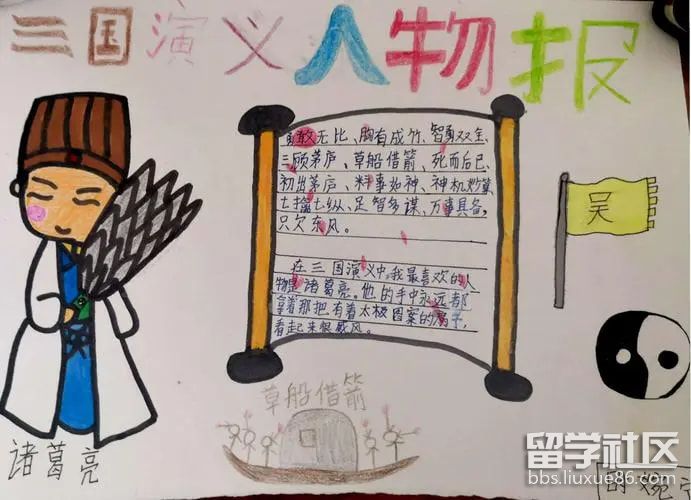 三国演义人物报
勇敢无比、胸有成竹、智勇双全、
三顾茅庐、草船借箭、死而后已、
初出茅庐、料事如神、神机妙算、
七擒七纵、足智多谋、万事具备,
只欠东风。
在三国演义中,我最喜欢的人
物是诸葛亮。他的手中永远都
拿着那把有着太极图案的扇子,
看起来很威风。
吴
草船借箭
诸葛亮
留学社区
bbs.liuxue86.com